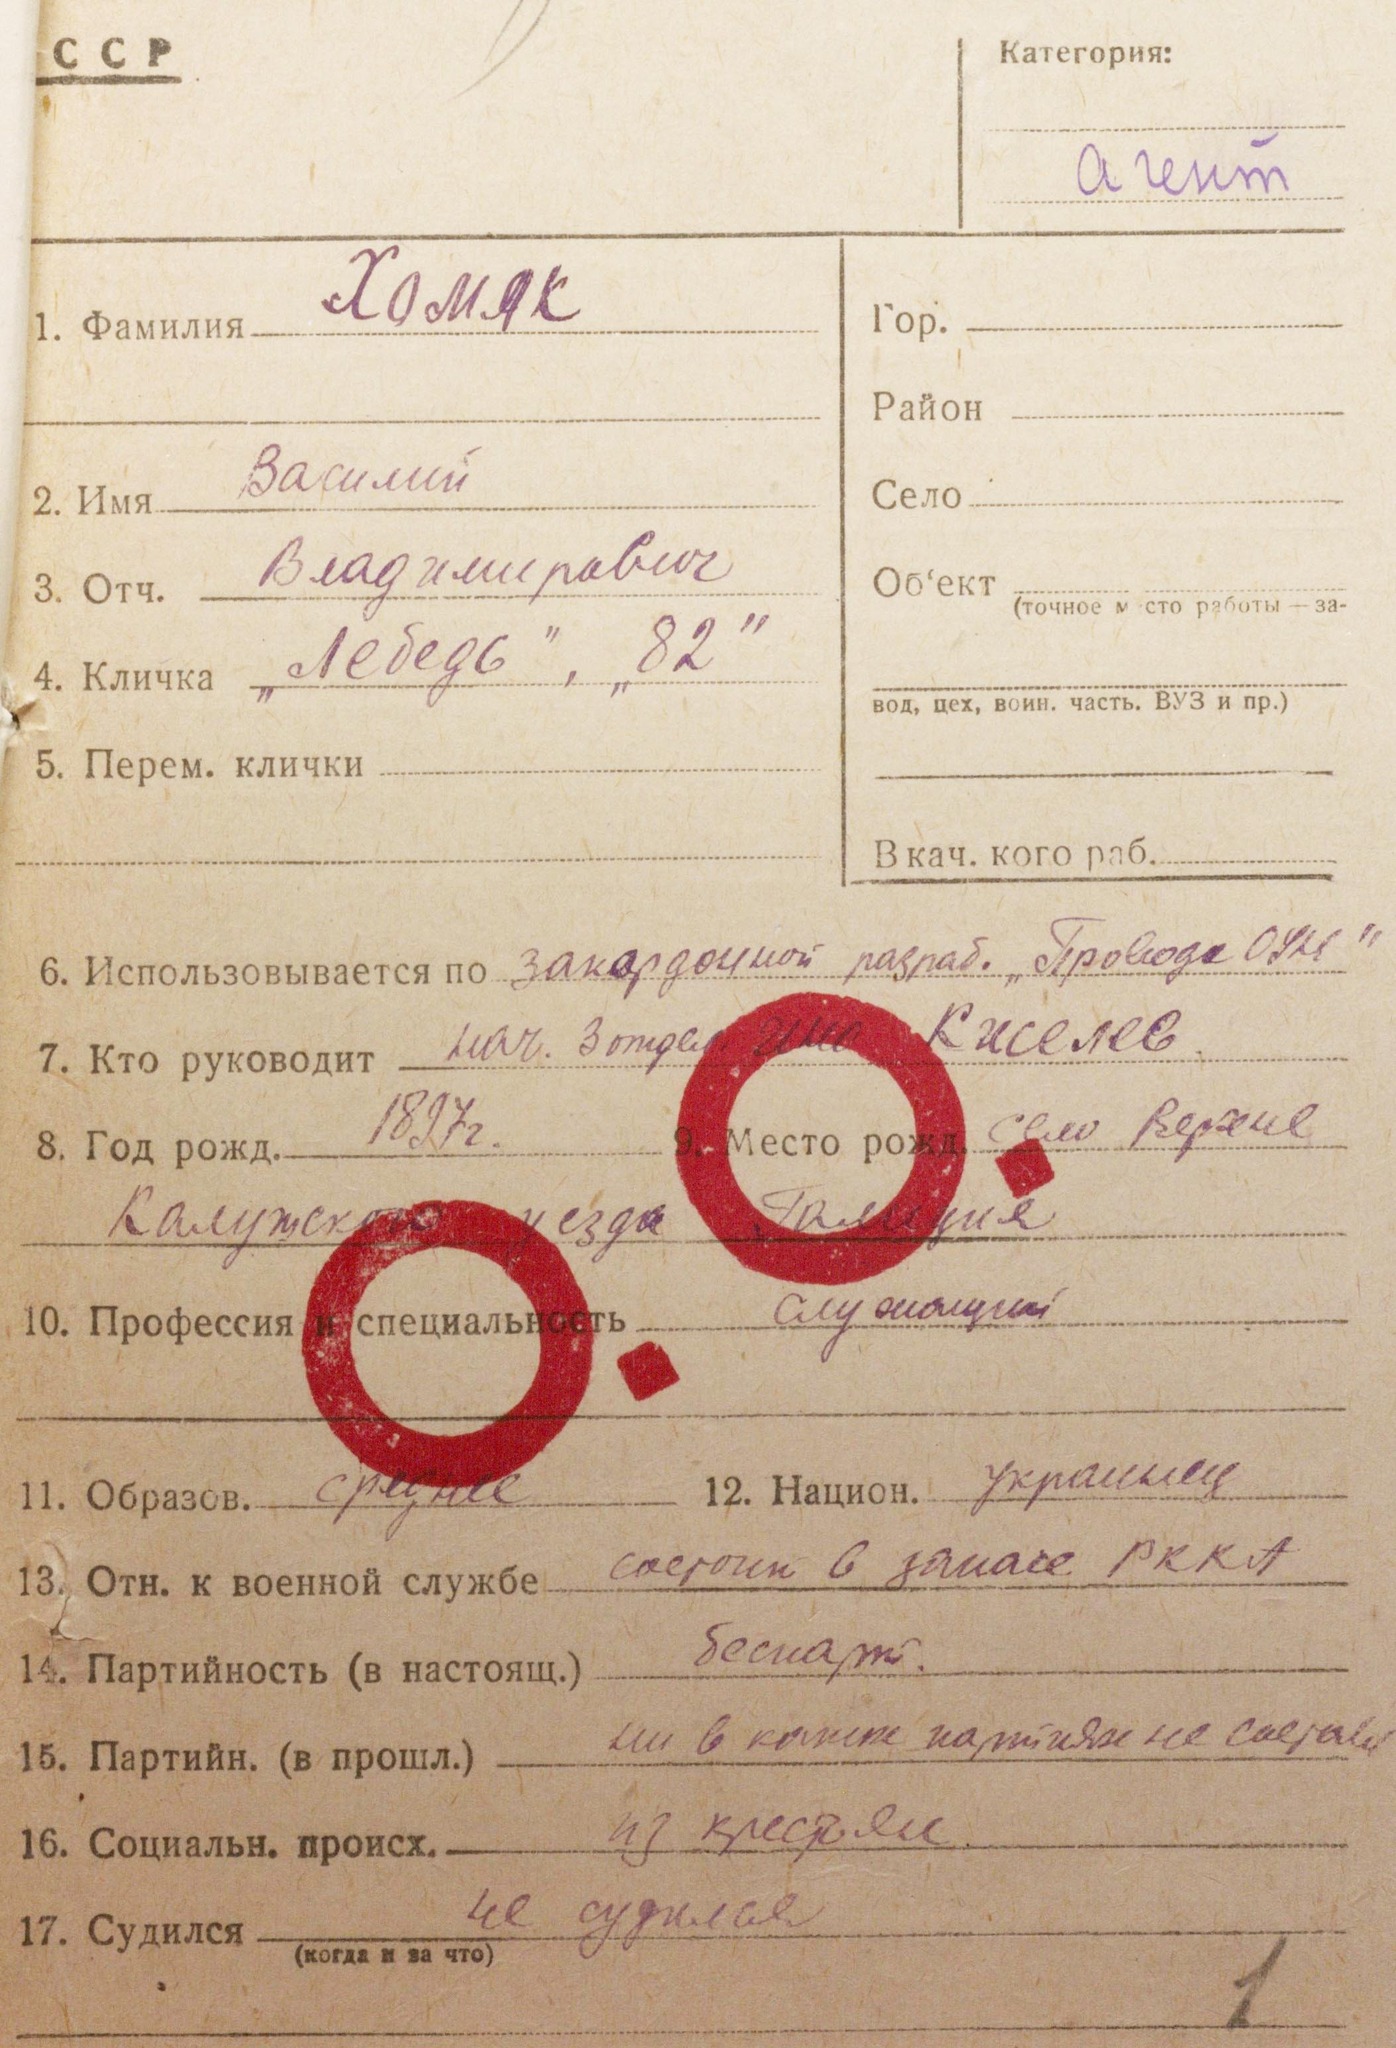 ССР
Категория:
агент
1. Фамилия Хомяк
2. Имя Василий
3. Отч. Владимирович
4. Кличка „Лебедь", „82"
5. Перем. клички
Гор.
Район
Село
Об'ект
(точное место работы — за-
вод, цех, воин. часть. ВУЗ и пр.)
В кач. кого раб.
6. Использовывается по закордонной разраб. „Провода ОУН"
7. Кто руководит нач. 3 отдел Киселев
8. Год рожд. 1897г. 9. Место рожд. село Верхне
Калужского уезда Галиция
10. Профессия и специальность служащий
11. Образов. среднее 12. Национ. украинец
13. Отн. к военной службе состоит в запасе РККА
14. Партийность (в настоящ.) беспарт.
15. Партийн. (в прошл.) ни в каких партиях не состоял
16. Социальн. происх. из крестьян.
17. Судился не судился
(когда и за что)
1